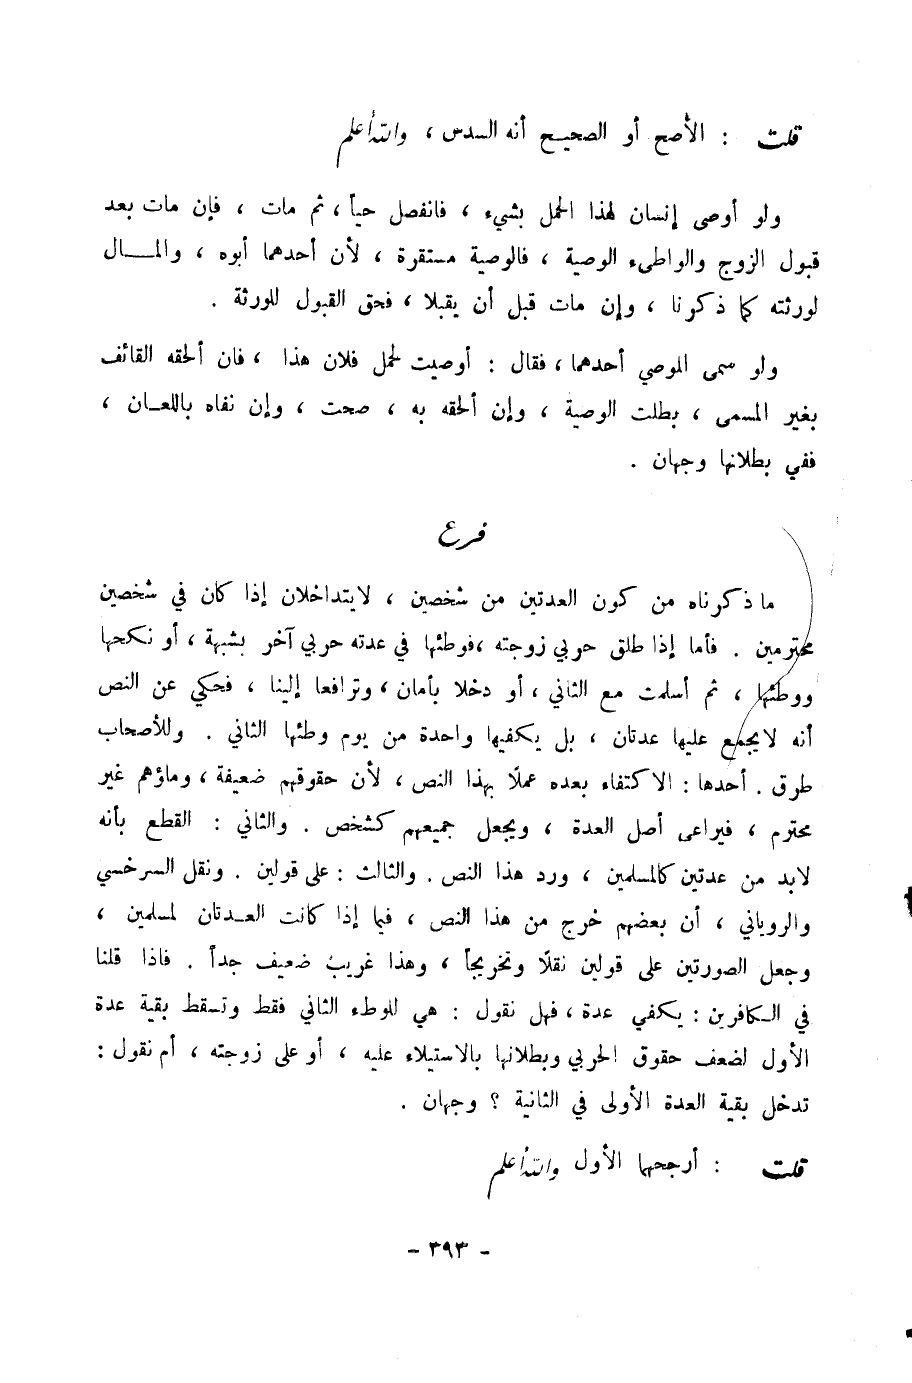 قلت : الأصح أو الصحيح أنه السدس ، والله أعلم
ولو أوصى إنسان لهذا الحمل بشيء ، فانفصل حياً ، ثم مات ، فإن مات بعد
قبول الزوج والواطىء الوصية ، فالوصية مستقرة ، لأن أحدهما أبوه ، والمـــال
لورثته كما ذكرنا ، وإن مات قبل أن يقبلا ، فحق القبول للورثة .
ولو سمى الموصي أحدهما ، فقال : أوصيت لحمل فلان هذا ، فان ألحقه القائف
بغير المسمى ، بطلت الوصية ، وإن ألحقه به ، صحت ، وإن نفاه باللعـان ،
ففي بطلانها وجهان .
فرع
ما ذكرناه من كون العدتين من شخصين ، لايتداخلان إذا كان في شخصين
محترمين . فأما إذا طلق حربي زوجته ،فوطئها في عدته حربي آخر بشبهة ، أو نكحها
ووطئها ، ثم أسلمت مع الثاني ، أو دخلا بأمان ، وترافعا إلينا ، فحكي عن النص
أنه لايجمع عليها عدتان ، بل يكفيها واحدة من يوم وطئها الثاني . وللأصحاب
طرق . أحدها : الاكتفاء بعده عملًا بهذا النص ، لأن حقوقهم ضعيفة ، وماؤهم غير
محترم ، فيراعى أصل العدة ، ويجعل جميعهم كشخص . والثاني : القطع بأنه
لابد من عدتين كالمسلمين ، ورد هذا النص . والثالث : على قولين . ونقل السرخسي
والروياني ، أن بعضهم خرج من هذا النص ، فيما إذا كانت العـدتان لمسلمين ،
وجعل الصورتين على قولين نقلًا وتخريجاً ، وهذا غريب ضعيف جداً . فاذا قلنا
في الـكافرين : يكفي عدة ، فهل نقول : هي للوطء الثاني فقط وتسقط بقية عدة
الأول لضعف حقوق الحربي وبطلانها بالاستيلاء عليه ، أو على زوجته ، أم نقول :
تدخل بقية العدة الأولى في الثانية ؟ وجهان .
قلت : أرجحهما الأول والله أعلم
- ٣٩٣ -